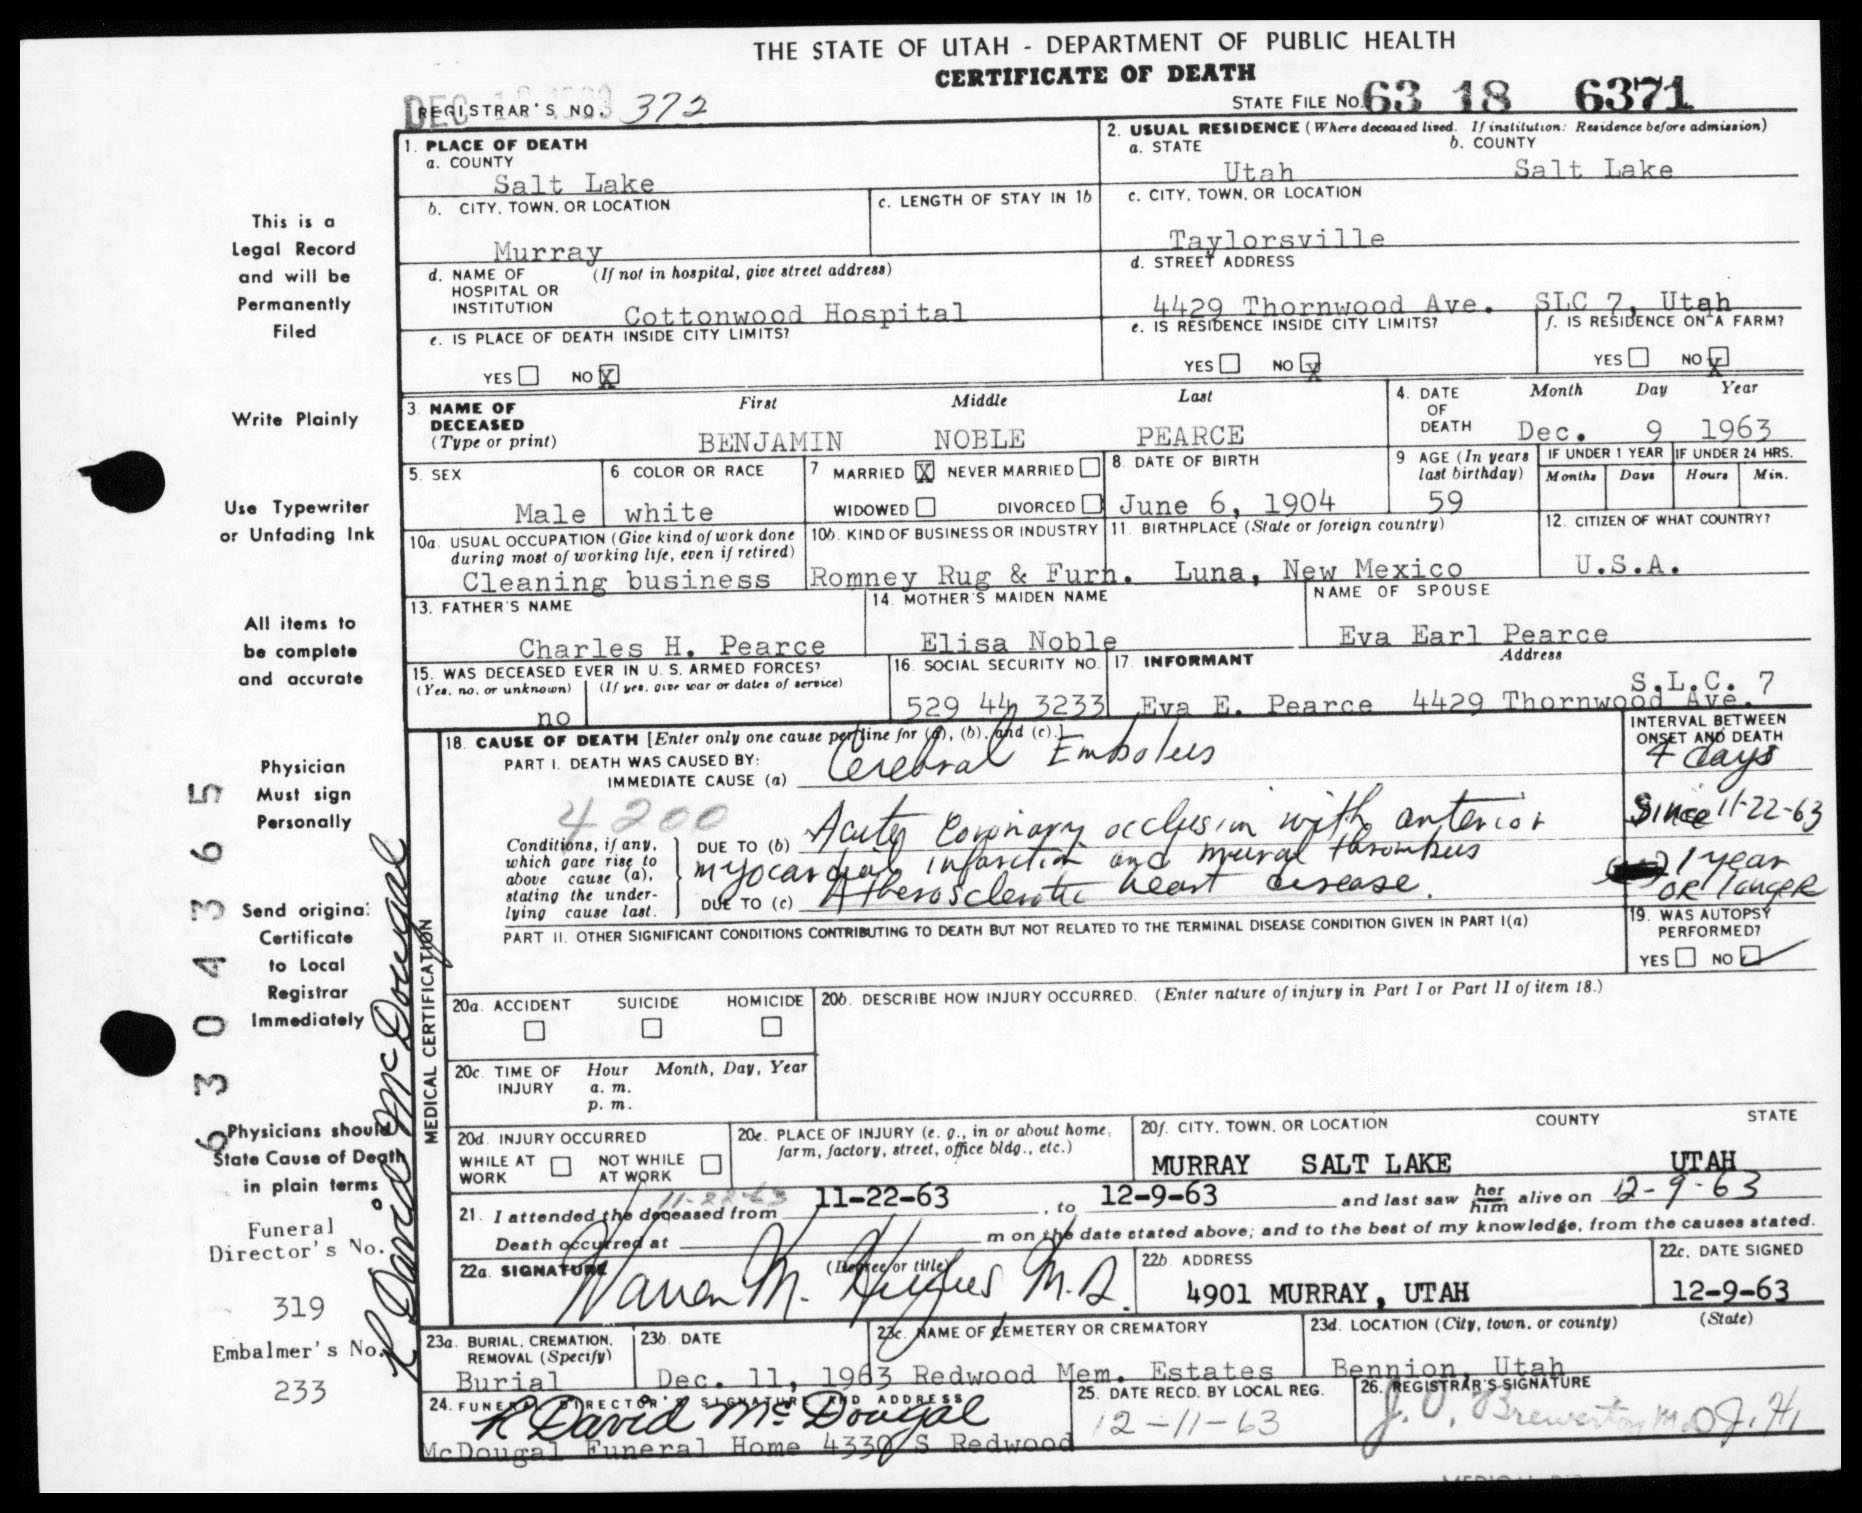 THE STATE OF UTAH - DEPARTMENT OF PUBLIC HEALTH
CERTIFICATE OF DEATH
DEC
REGISTRAR'S NO. 372
STATE FILE NO. 63 18 6371
1. PLACE OF DEATH
a. COUNTY
Salt Lake
2. USUAL RESIDENCE (Where deceased lived. If institution: Residence before admission)
a. STATE b. COUNTY
Utah Salt Lake
b. CITY, TOWN, OR LOCATION
Murray
c. LENGTH OF STAY IN 1b
c. CITY, TOWN, OR LOCATION
Taylorsville
d. NAME OF (If not in hospital, give street address)
HOSPITAL OR
INSTITUTION
Cottonwood Hospital
d. STREET ADDRESS
4429 Thornwood Ave. SLC 7, Utah
e. IS PLACE OF DEATH INSIDE CITY LIMITS?
YES NO X
e. IS RESIDENCE INSIDE CITY LIMITS?
YES NO X
f. IS RESIDENCE ON A FARM?
YES NO X
3. NAME OF
DECEASED
(Type or print)
First Middle Last
BENJAMIN NOBLE PEARCE
4. DATE
OF
DEATH
Month Day Year
Dec. 9 1963
5. SEX
Male
6 COLOR OR RACE
white
7 MARRIED X NEVER MARRIED
WIDOWED DIVORCED
8. DATE OF BIRTH
June 6, 1904
9 AGE (In years
last birthday)
59
IF UNDER 1 YEAR
Months Days
IF UNDER 24 HRS.
Hours Min.
10a. USUAL OCCUPATION (Give kind of work done
during most of working life, even if retired)
Cleaning business
10b. KIND OF BUSINESS OR INDUSTRY
Romney Rug & Furn.
11. BIRTHPLACE (State or foreign country)
Luna, New Mexico
12. CITIZEN OF WHAT COUNTRY?
U.S.A.
13. FATHER'S NAME
Charles H. Pearce
14. MOTHER'S MAIDEN NAME
Elisa Noble
NAME OF SPOUSE
Eva Earl Pearce
15. WAS DECEASED EVER IN U. S. ARMED FORCES?
(Yes, no, or unknown) (If yes, give war or dates of service)
no
16. SOCIAL SECURITY NO.
529 44 3233
17. INFORMANT Address
S.L.C. 7
Eva E. Pearce 4429 Thornwood Ave.
18. CAUSE OF DEATH [Enter only one cause per line for (a), (b), and (c).]
PART I. DEATH WAS CAUSED BY:
IMMEDIATE CAUSE (a) Cerebral Embolus
INTERVAL BETWEEN
ONSET AND DEATH
4 days
4200
Conditions, if any,
which gave rise to
above cause (a),
stating the under-
lying cause last.
DUE TO (b) Acute Coronary occlusion with anterior
myocardial infarction and mural thrombus
Since 11-22-63
DUE TO (c) Atherosclerotic heart disease.
1 year
or longer
PART II. OTHER SIGNIFICANT CONDITIONS CONTRIBUTING TO DEATH BUT NOT RELATED TO THE TERMINAL DISEASE CONDITION GIVEN IN PART I(a)
19. WAS AUTOPSY
PERFORMED?
YES NO
20a. ACCIDENT SUICIDE HOMICIDE
20b. DESCRIBE HOW INJURY OCCURRED. (Enter nature of injury in Part I or Part II of item 18.)
20c. TIME OF
INJURY
Hour Month, Day, Year
a. m.
p. m.
20d. INJURY OCCURRED
WHILE AT
WORK
NOT WHILE
AT WORK
20e. PLACE OF INJURY (e. g., in or about home,
farm, factory, street, office bldg., etc.)
20f. CITY, TOWN, OR LOCATION COUNTY STATE
MURRAY SALT LAKE UTAH
11-22-63
21. I attended the deceased from 11-22-63, to 12-9-63 and last saw her him alive on 12-9-63
Death occurred at m on the date stated above; and to the best of my knowledge, from the causes stated.
22a. SIGNATURE (Degree or title)
Warren M. Hughes M.D.
22b. ADDRESS
4901 MURRAY, UTAH
22c. DATE SIGNED
12-9-63
23a. BURIAL, CREMATION,
REMOVAL (Specify)
Burial
23b. DATE
Dec. 11, 1963
23c. NAME OF CEMETERY OR CREMATORY
Redwood Mem. Estates
23d. LOCATION (City, town, or county) (State)
Bennion, Utah
24. FUNERAL DIRECTOR'S SIGNATURE AND ADDRESS
R David McDougal
McDougal Funeral Home 4330 S Redwood
25. DATE RECD. BY LOCAL REG.
12-11-63
26. REGISTRAR'S SIGNATURE
J. O. Brewerton M.D. J. H.
This is a
Legal Record
and will be
Permanently
Filed
Write Plainly
Use Typewriter
or Unfading Ink
All items to
be complete
and accurate
Physician
Must sign
Personally
Send original
Certificate
to Local
Registrar
Immediately
Physicians should
State Cause of Death
in plain terms
Funeral
Director's No.
319
Embalmer's No.
233
6304365
R David McDougal
MEDICAL CERTIFICATION